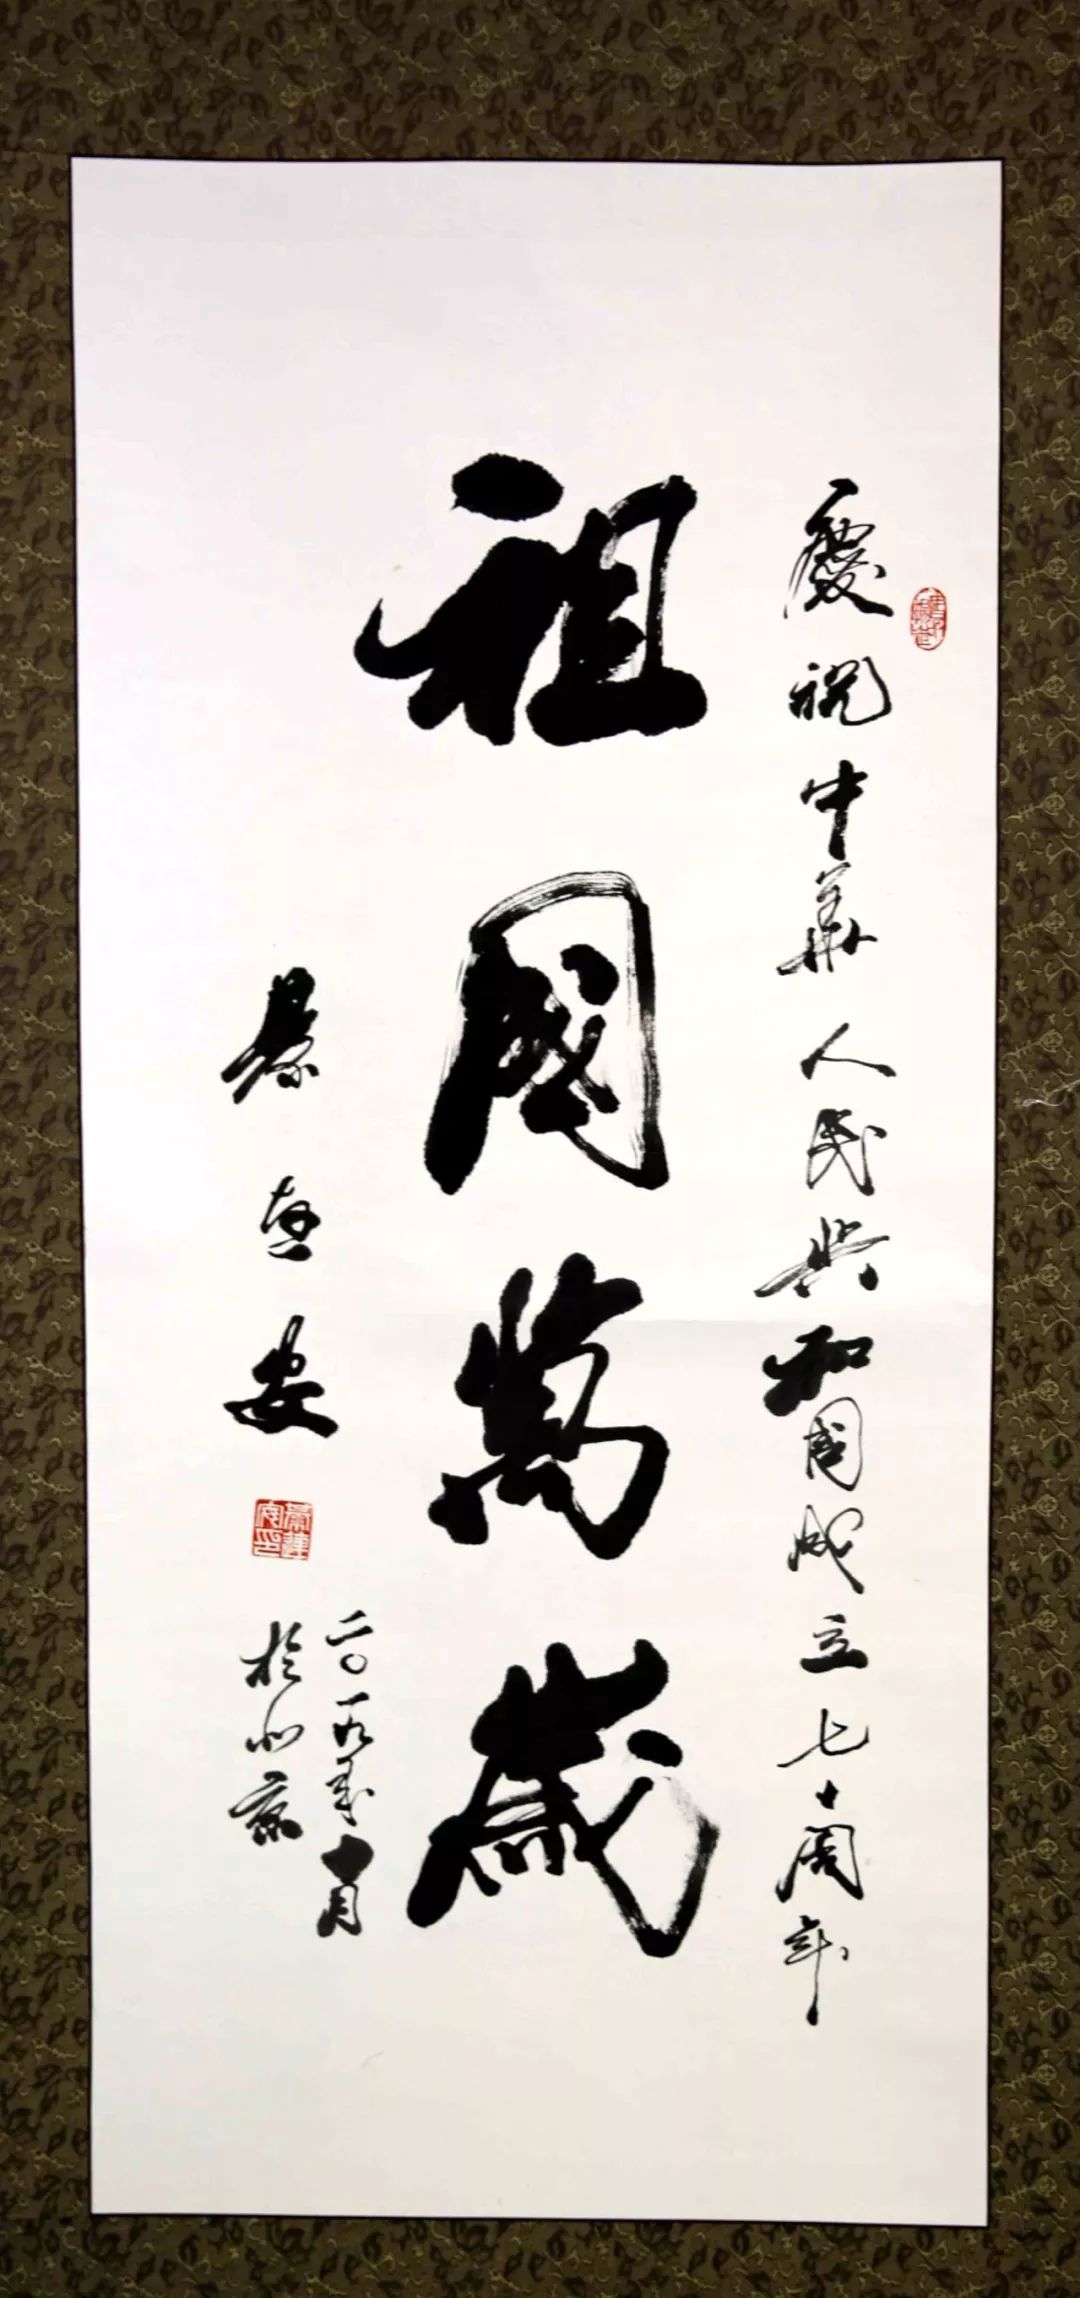 慶祝中華人民共和國成立七十周年
祖國萬歲
二〇一九年十月
於北京